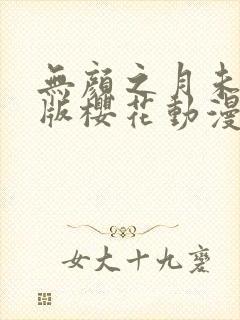 無顏之月未
版櫻花動漫
女大十九變